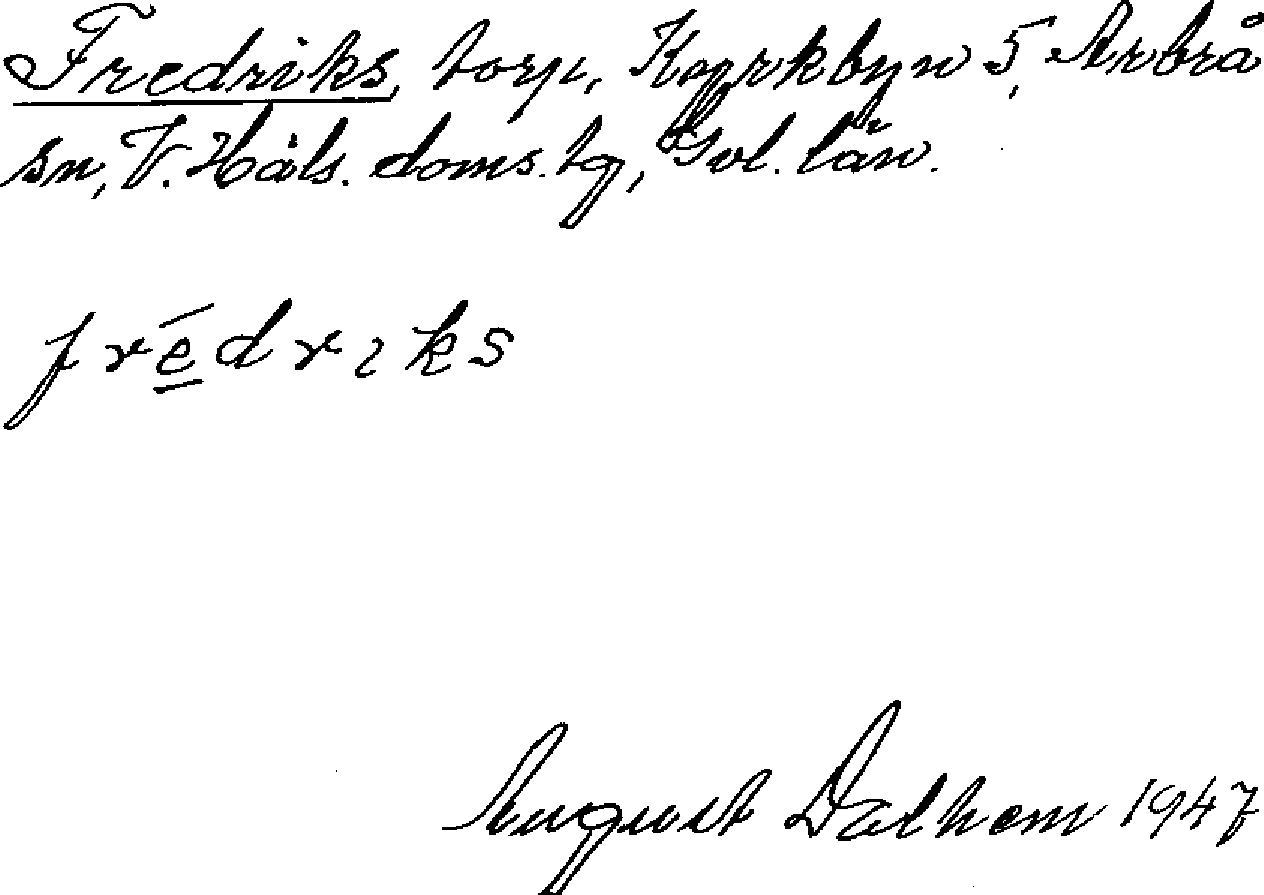 Fredriks, torp, Kyrkbyn 5, Arbrå
sn, V. Häls. doms. tg, Gvl. län.
fré̲drıks
August Dalhem 1947